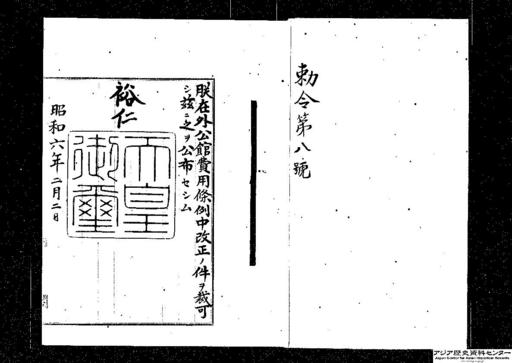 勅令第八號
朕在外公館費用條例中改正ノ件ヲ裁可
シ茲ニ之ヲ公布セシム
裕仁
天皇
御璽
昭和六年二月二日
アジア歴史資料センター
Japan Center for Asian Historical Records